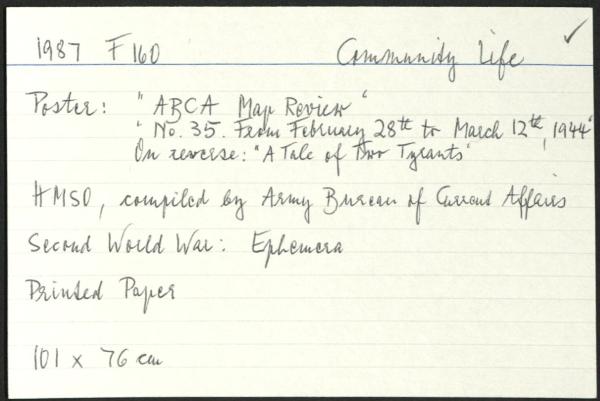 1987 F160 Community Life ✓
Poster: "ABCA Map Review"
"No. 35. From February 28th to March 12th, 1944"
On reverse: "A Tale of Two Tyrants"
HMSO, compiled by Army Bureau of Current Affairs
Second World War: Ephemera
Printed Paper
101 x 76 cm